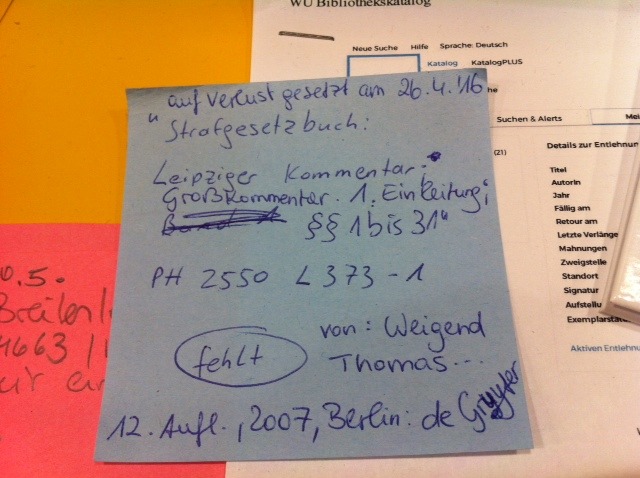 WU Bibliothekskatalog
Neue Suche Hilfe Sprache: Deutsch
Katalog KatalogPLUS
auf Verlust gesetzt am 26.4.'16
" Strafgesetzbuch:
Leipziger Kommentar;
Großkommentar. 1. Einleitung;
§§ 1 bis 31"
PH 2550 L 373 - 1
fehlt
von: Weigend
Thomas...
12. Aufl., 2007, Berlin: de Gruyter
Suchen & Alerts
(21)
Details zur Entlehnun
Titel
AutorIn
Jahr
Fällig am
Retour am
Letzte Verlänge
Mahnungen
Zweigstelle
Standort
Signatur
Aufstellu
Exemplarstat
Aktiven Entlehnu
0.5.